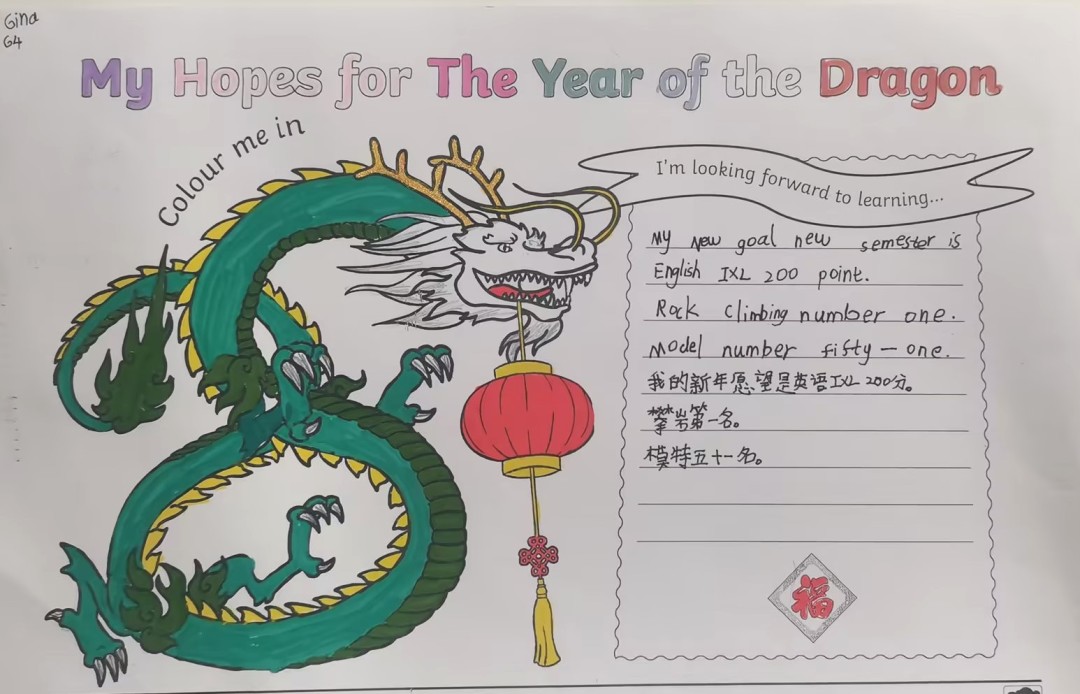 Gina
G4
My Hopes for The Year of the Dragon
Colour me in
I'm looking forward to learning...
My New goal new semester is
English IXL 200 point.
Rock Climbing number one.
Model number fifty-one.
我的新年愿望是英语IXL 200分。
攀岩第一名。
模特五十一名。
福